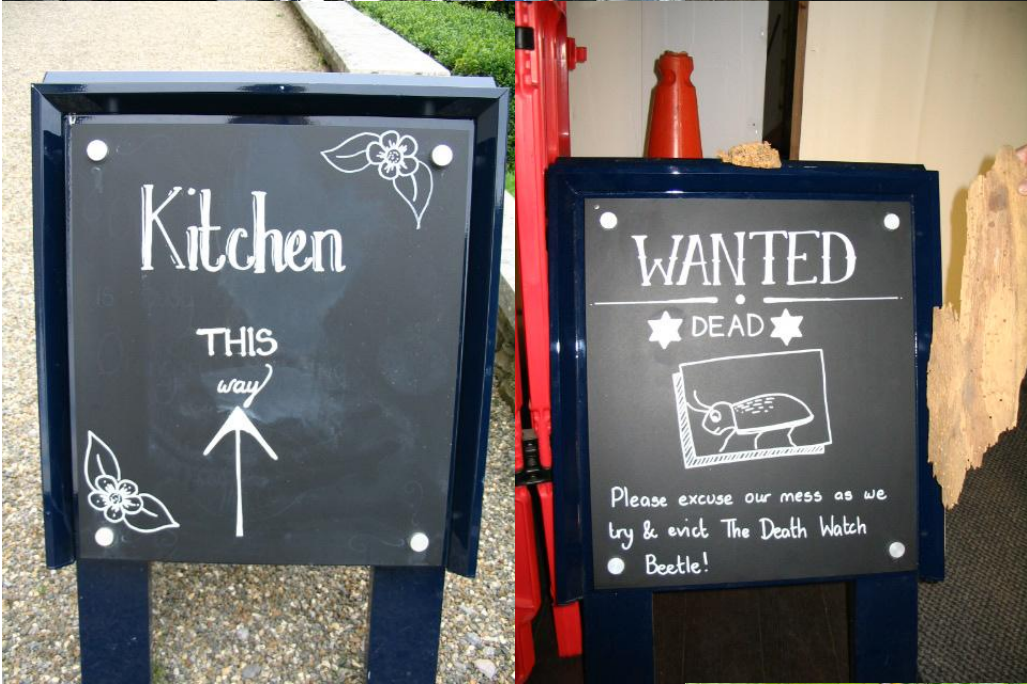 Kitchen
THIS
way
WANTED
DEAD
Please excuse our mess as we
try & evict The Death Watch
Beetle!